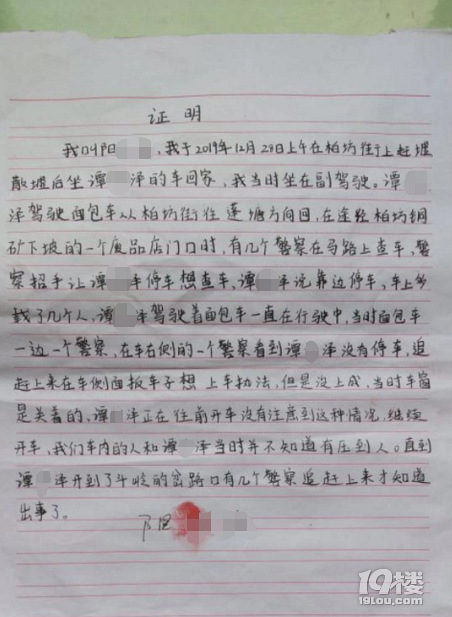 证明
我叫阳 ，我于2019年12月28日上午在柏坊街上赶墟
散墟后坐谭 泽的车回家，我当时坐在副驾驶。谭
泽驾驶面包车从柏坊街往蓬塘方向回，在途经柏坊铜
矿下坡的一个废品店门口时，有几个警察在马路上查车，警
察招手让谭 车停车想查车，谭 泽说靠边停车，车上多
载了几个人，谭 泽驾驶着面包车一直在行驶中，当时面包车
一边一个警察，在车右侧的一个警察看到谭 泽没有停车，追
赶上来在车侧面扳车子想上车执法，但是没上成，当时车窗
是关着的，谭 泽正在往前开车没有注意到这种情况，继续
开车，我们车内的人和谭 泽当时并不知道有压到人。直到
谭 泽开到了斗岭的岔路口有几个警察追赶上来才知道
出事了。
阳
19楼
19lou.com